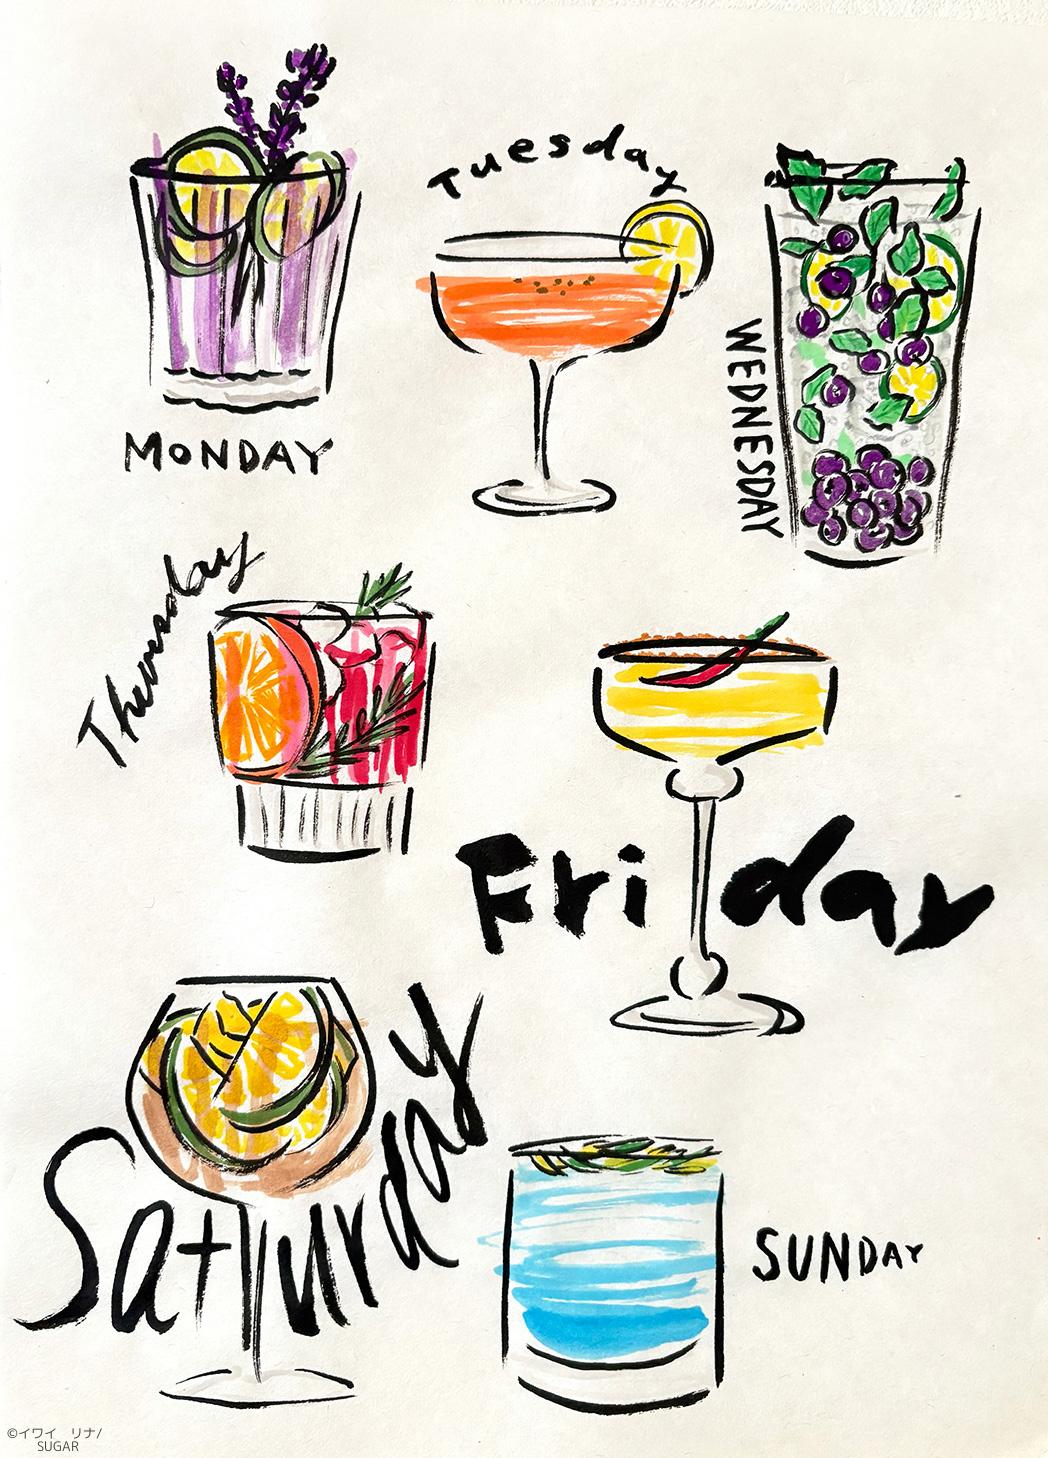 MONDAY
Tuesday
WEDNESDAY
Thursday
Friday
Saturday
SUNDAY
©イワイ リナ/
SUGAR